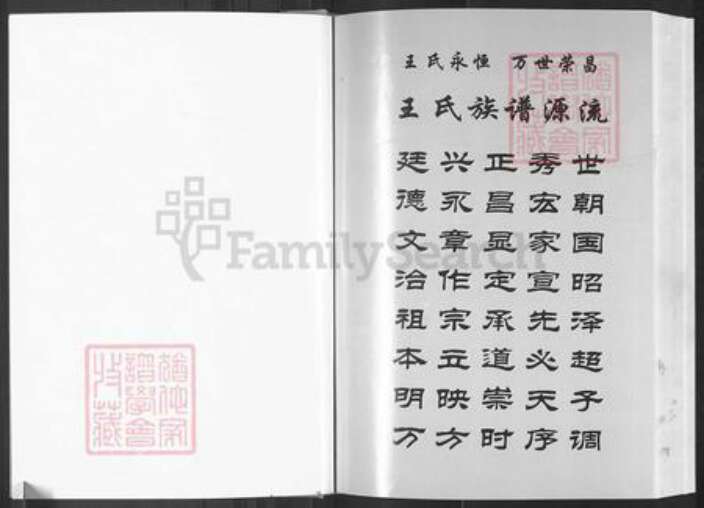 王氏永恒 万世荣昌
王氏族谱源流
廷兴正秀世
德永昌宏朝
文章显家国
治作定宣昭
祖宗承先泽
本立道必超
明映崇天子
万方时序调
FamilySearch